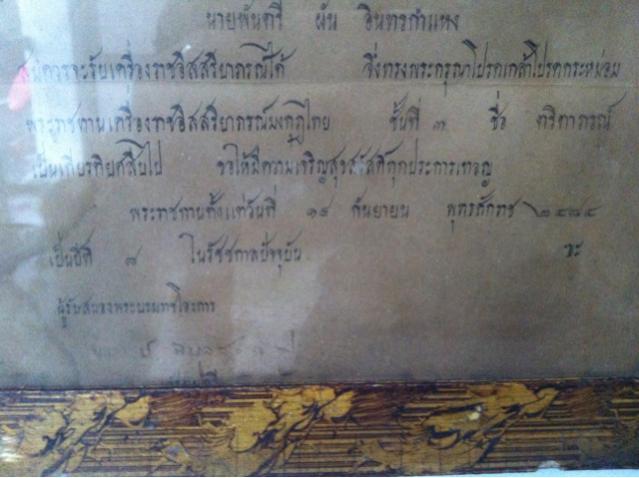 นายพันตรี ผัน อินทรกำแหง
สมควรจะรับเครื่องราชอิสสริยาภรณ์ได้ จึ่งทรงพระกรุณาโปรดเกล้าโปรดกระหม่อม
พระราชทานเครื่องราชอิสสริยาภรณ์มงกุฎไทย ชั้นที่ ๓ ชื่อ ตริตาภรณ์
เป็นเกียรติยศสืบไป ขอให้มีความเจริญสุขสวัสดิ์ทุกประการเทอญ
พระราชทานตั้งแต่วันที่ ๑๙ กันยายน พุทธศักราช ๒๔๘๔
เป็นปีที่ ๘ ในรัชชกาลปัจจุบัน
ผู้รับสนองพระบรมราชโองการ